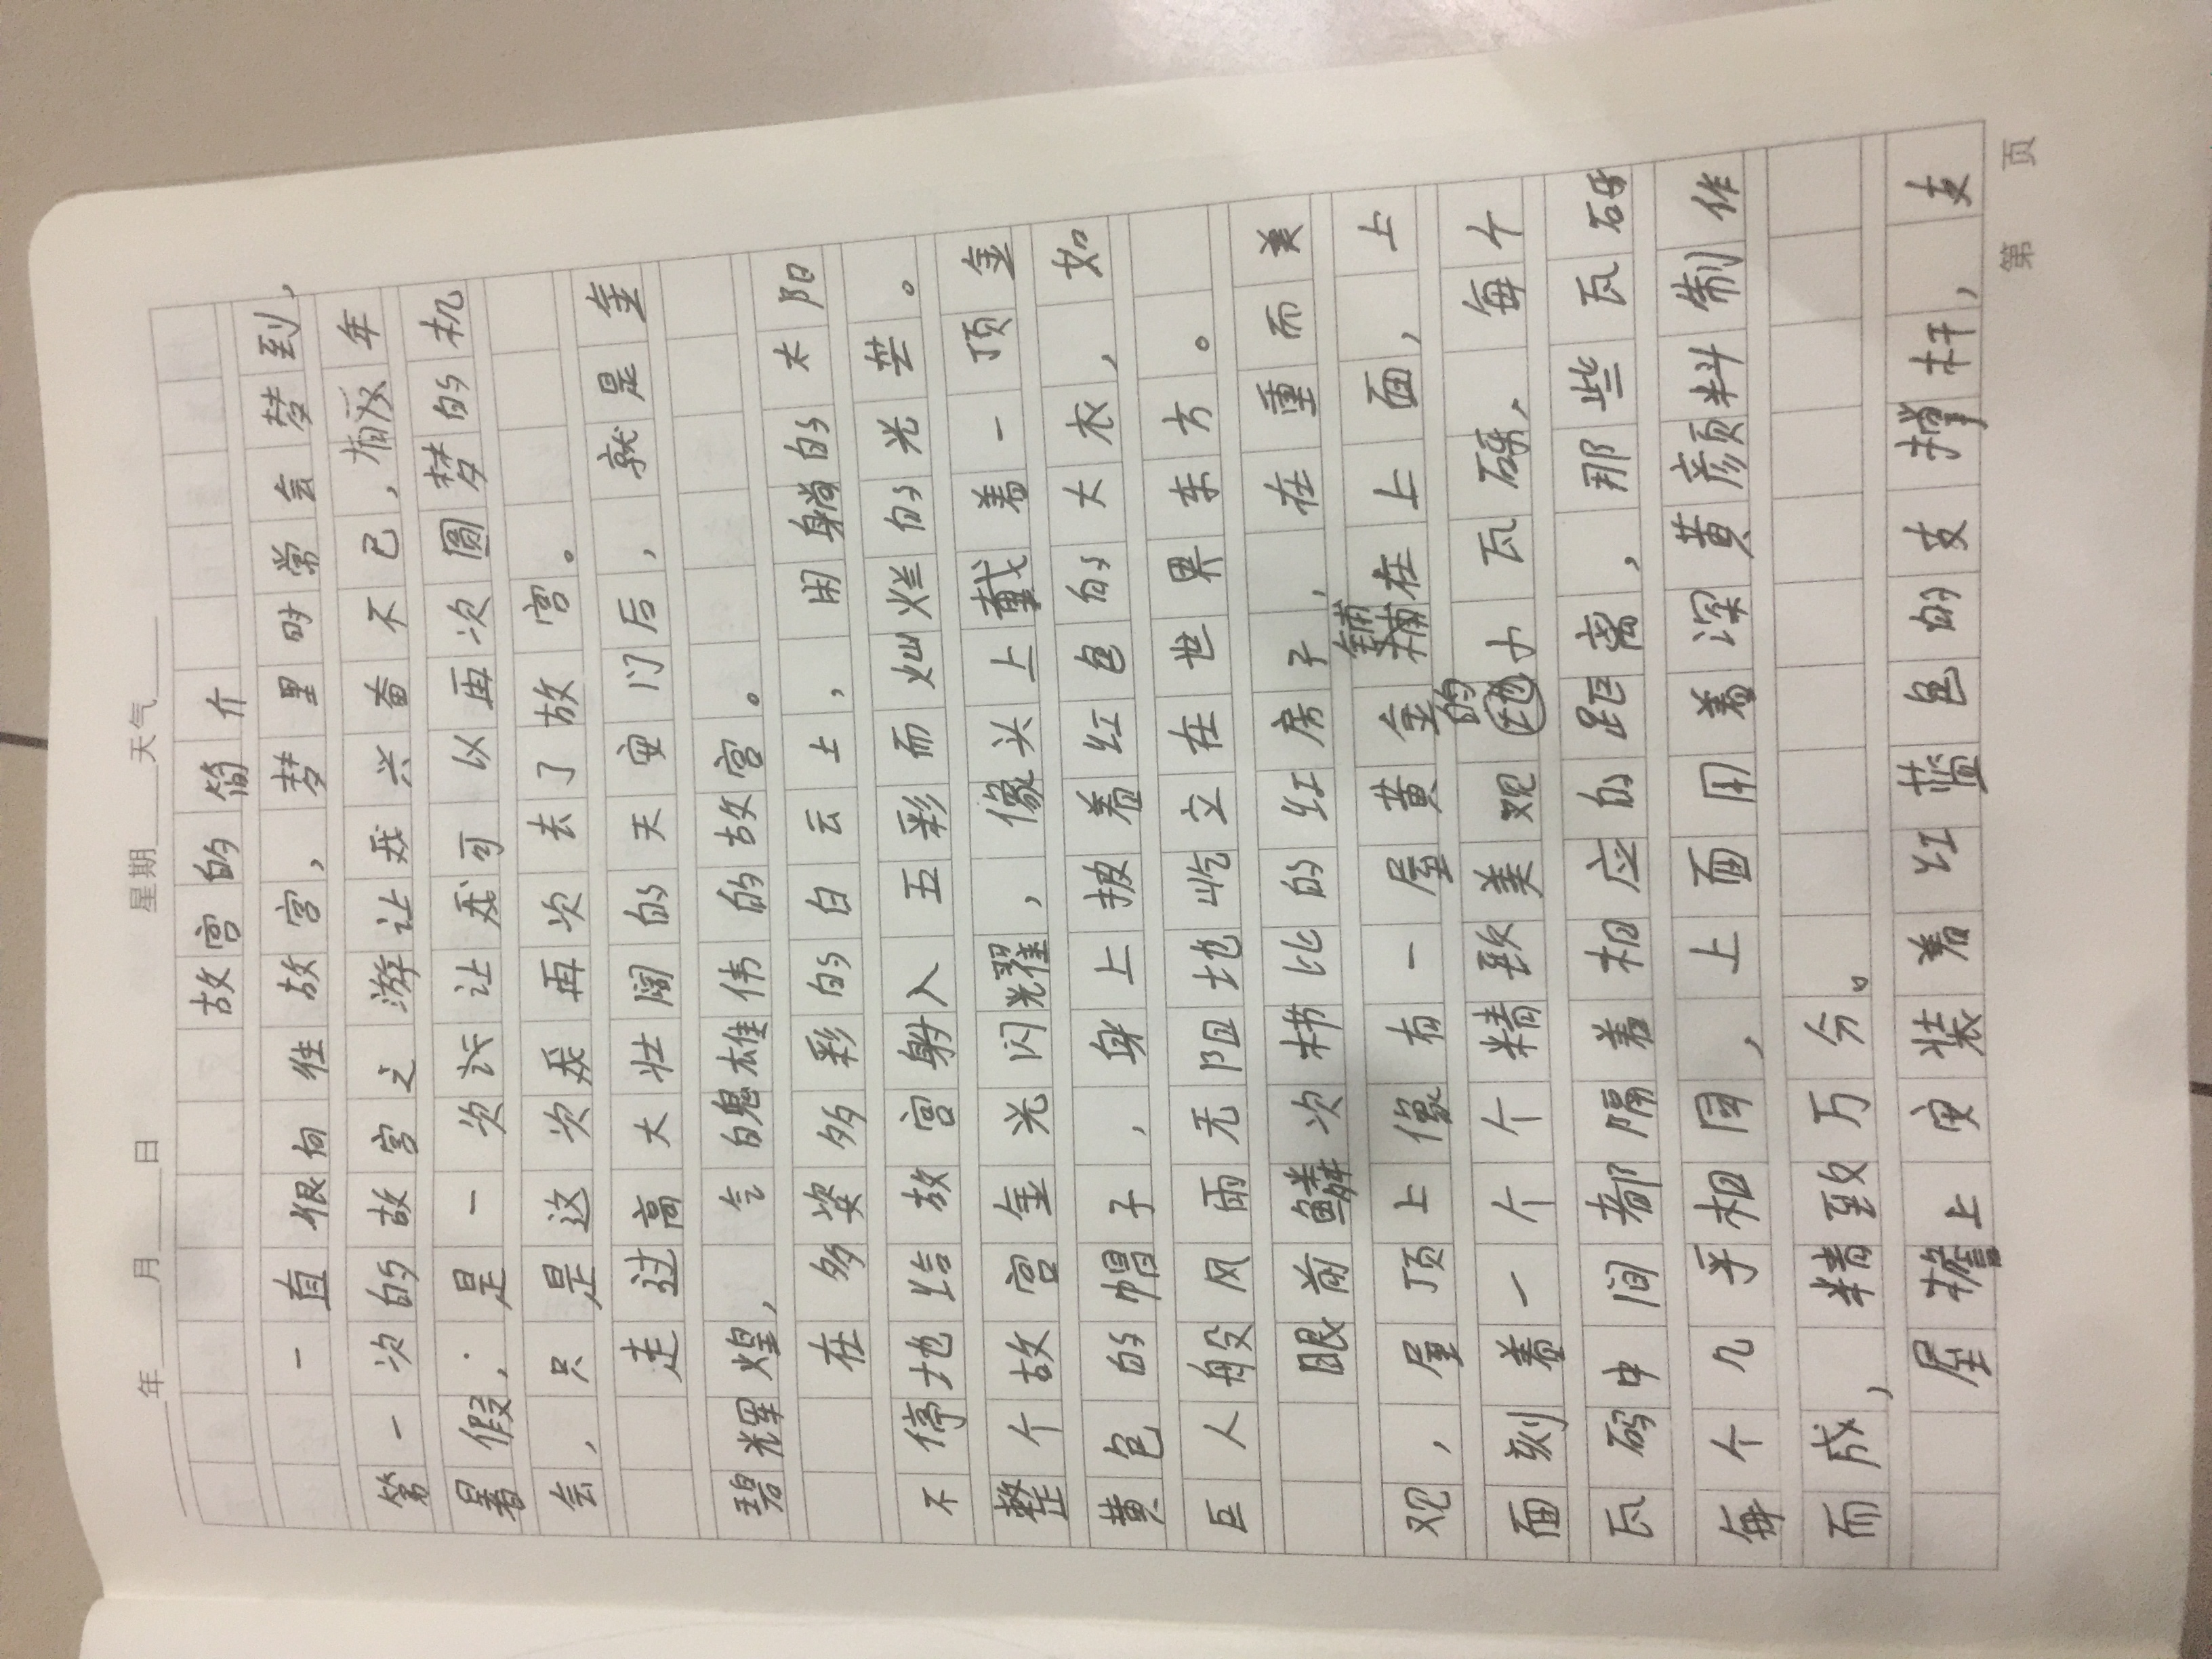 年 月 日 星期 天气
故宫的简介
一直很向往故宫,梦里时常会梦到,
第一次的故宫之游让我兴奋不已,年
暑假,是一次让我可以再次圆梦的机
会,只是这次我再次去了故宫。
走过高大壮阔的天安门后,就是金
碧辉煌,气魄雄伟的故宫。
在多姿多彩的白云上,躺的太阳
不停地给故宫射入五彩而灿烂的光芒。
整个故宫金光闪耀,像头上戴着一顶金
黄色的帽子,身上披着红色的大衣,如
巨人般风雨无阻地屹立在世界东方。
眼前鳞次栉比的红房子,在重而美
观,屋顶上像有一层黄金铺在上面,上
面刻着一个个精致美观的小瓦砾,每个
瓦砾中间都隔着相应的距离,那些瓦砾
每个几乎相同,上面用着深黄颜料制作
而成,精致万分。
屋檐上安装着红蓝色的支撑杆,支
第 页